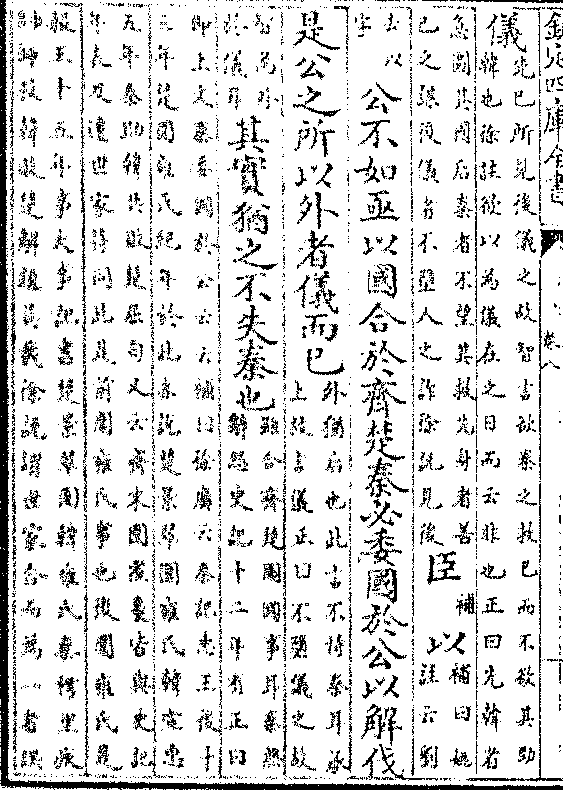 欽定四庫全書
卷八
儀先已所見後儀之故智言欲秦之救已而不救其助
韓也徐註欲以為儀在之日而云非也正曰先韓者
急圖其國后秦者不望其救先身者善
已之謀後儀者不墮人之詐徐説見後臣補以補曰姚
註云劉
去以
字公不如亟以國合於齊楚秦必委國於公以解伐
是公之所以外者儀而已外猶后也此言不恃秦耳承
上故言儀正曰不彊儀之故
智為外
於儀耳其實猶之不失秦也雖合齊楚圖國事耳秦然
解為史記十二年有正曰
即上文秦委國於公云云補曰徐廣云秦記惠王後十
三年楚圍雍氏紀年於此亦説楚景翠圍雍氏韓宣惠
王卒秦助韓共敗楚屈匄又云齊宋圍煮棗皆與史記
年表及田世家符同此是前圍雍氏事也後圍雍氏是
赧王十五年事大事記書楚景翠圍韓雍氏秦樗里疾
帥師救韓敗楚解題徐説謂世家合而為一者誤